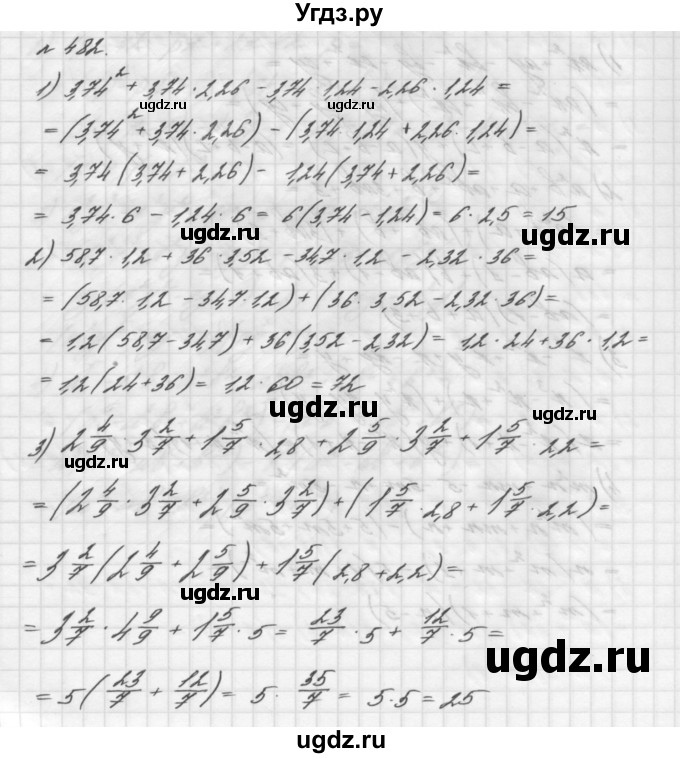 Угдз.ру
№ 482.
1) 3,74² + 3,74 · 2,26 - 3,74 · 1,24 - 2,26 · 1,24 =
ugdz.ru ugdz.ru
= (3,74² + 3,74 · 2,26) - (3,74 · 1,24 + 2,26 · 1,24) =
= 3,74 (3,74 + 2,26) - 1,24 (3,74 + 2,26) =
= 3,74 · 6 - 1,24 · 6 = 6 (3,74 - 1,24) = 6 · 2,5 = 15
ugdz.ru ugdz.ru
2) 58,7 · 1,2 + 36 · 3,52 - 34,7 · 1,2 - 2,32 · 36 =
= (58,7 · 1,2 - 34,7 · 1,2) + (36 · 3,52 - 2,32 · 36) =
= 1,2 (58,7 - 34,7) + 36 (3,52 - 2,32) = 1,2 · 24 + 36 · 1,2 =
= 1,2 (24 + 36) = 1,2 · 60 = 72
ugdz.ru ugdz.ru
3) 2 4/9 · 3 2/7 + 1 5/7 · 2,8 + 2 5/9 · 3 2/7 + 1 5/7 · 2,2 =
ugdz.ru
= (2 4/9 · 3 2/7 + 2 5/9 · 3 2/7) + (1 5/7 · 2,8 + 1 5/7 · 2,2) =
ugdz.ru
= 3 2/7 (2 4/9 + 2 5/9) + 1 5/7 (2,8 + 2,2) =
ugdz.ru
= 3 2/7 · 4 9/9 + 1 5/7 · 5 = 23/7 · 5 + 12/7 · 5 =
ugdz.ru
= 5 (23/7 + 12/7) = 5 · 35/7 = 5 · 5 = 25
ugdz.ru